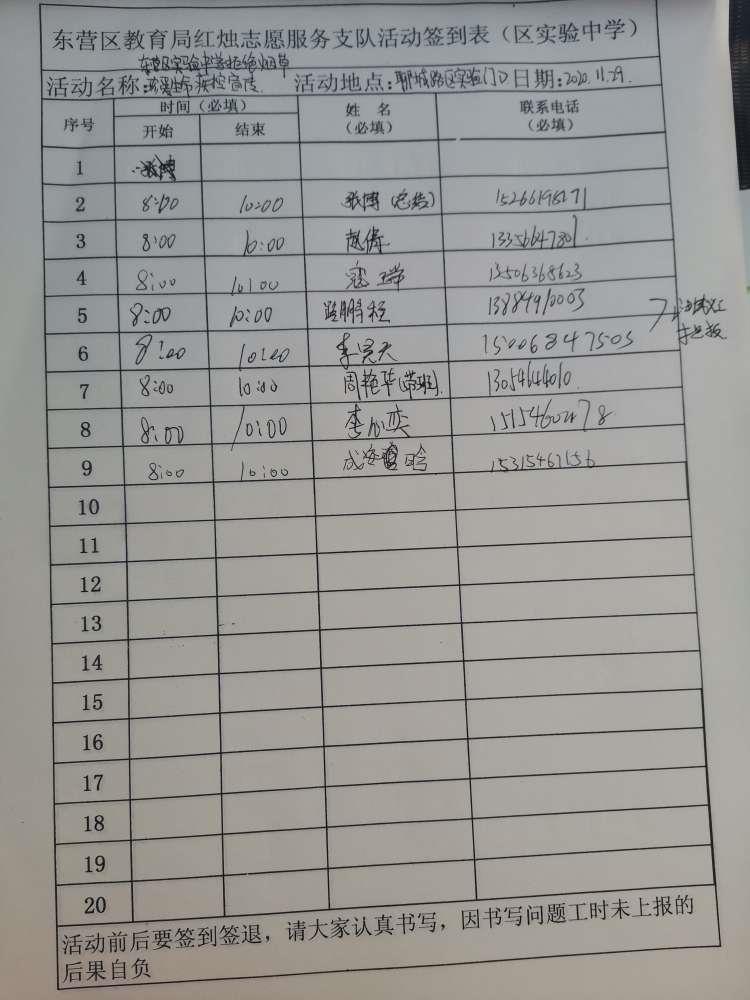 东营区教育局红烛志愿服务支队活动签到表（区实验中学）
东营区实验中学拒绝烟草
活动名称: 活动地点: 聊城路区实验门口 日期: 2020.11.29.
序号 时间（必填） 姓 名（必填） 联系电话（必填）
开始 结束
1
2 8:00 10:00 张博（总结） 15266198271
3 8:00 10:00 赵倩 13356647801
4 8:00 10:00 寇 13506368623
5 8:00 10:00 路鹏程 13884910003
6 8:00 10:00 李昊天 15006847505
7 8:00 10:00 周艳华（带班） 13054644010
8 8:00 10:00 李 奕 15154602178
9 8:00 10:00 成 晗 15315467156
10
11
12
13
14
15
16
17
18
19
20
活动前后要签到签退，请大家认真书写，因书写问题工时未上报的
后果自负